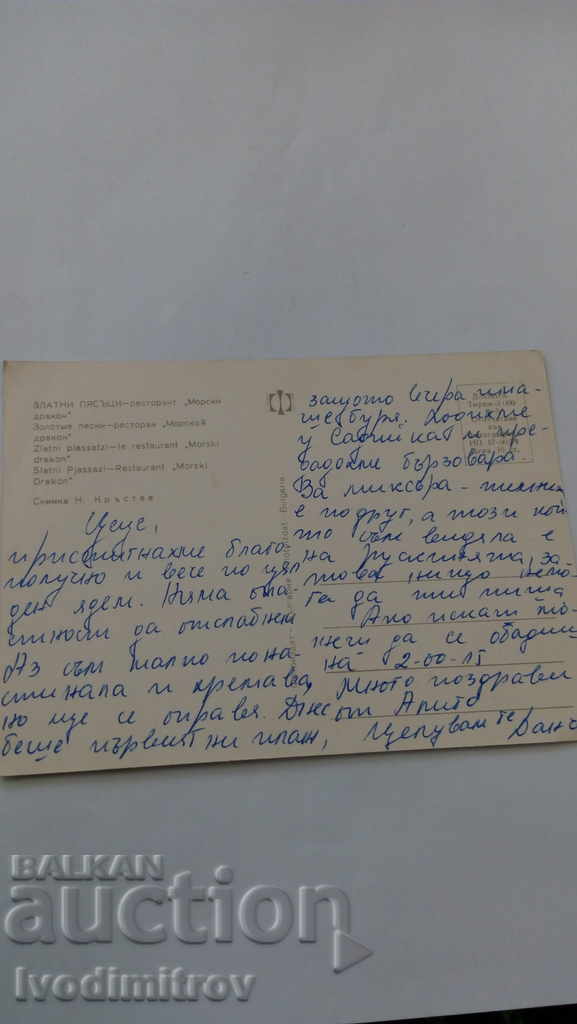 ЗЛАТНИ ПЯСЪЦИ—ресторант „Морски
дракон"
Золотые пески—ресторан „Морской
дракон"
Zlatni piassatzi—le restaurant „Morski
drakon"
Slatni Pjassazi—Restaurant „Morski
Drakon"
Снимка Н. Кръстев
Цеце,
пристигнахме благо-
получно и вече по цял
ден ядем. Няма опа-
сности да отслабнем.
Аз съм малко пона-
стинала и кремава,
но ще се оправя. Днес
беше първият ни плаж,
защото вчера има-
ше буря. Ходихме
у и пре-
бързовара.
За миксера
е подруг, а този кой-
то съм видяла е
на Русията, за
това нищо немо-
га да ти пиша
Ако искаш мо-
жеш да се обадиш
на 2-00-15
Много поздрави
от
Целувам те
BALKAN
auction
Ivodimitrov